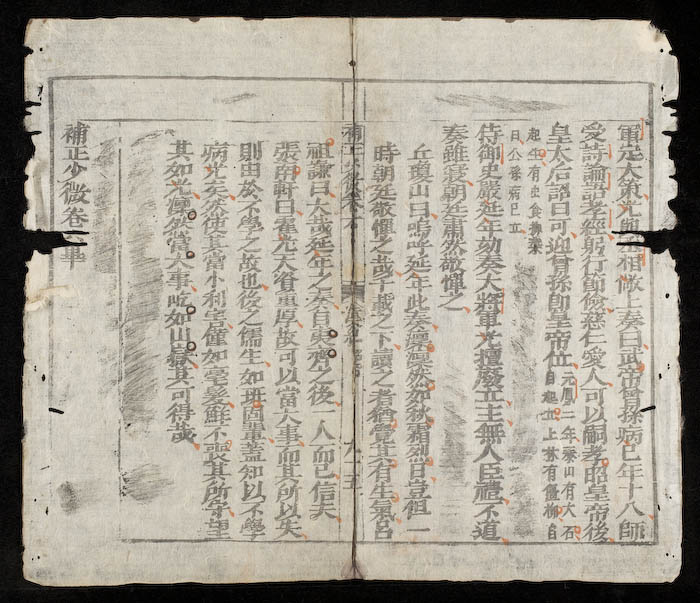 軍定大策光與丞相敞上奏曰武帝曾孫病已年十八師
受詩論語孝經躬行節儉慈仁愛人可以嗣孝昭皇帝後
皇太后詔曰可迎曾孫即皇帝位元鳳二年泰山有大石
自起立上林有僵柳自
起生有虫食柳葉
曰公孫病已立
侍御史嚴延年劾奏大將軍光擅廢立主無人臣禮不道
奏雖寢朝廷肅然敬憚之
丘瓊山曰嗚呼延年此奏凜凜然如秋霜烈日豈但一
時朝廷敬憚之哉千載之下讀之者猶覺其有生氣呂
補正少微卷六
九十五
祖謙曰大哉延年之奏自夷齊之後一人而已信夫
張南軒曰霍光天資重厚故可以當大事而其所以失
則由於不學之故也後之儒生如班固輩蓋知以不學
病光矣然使其當小利害僅如毫髮鮮不喪其所守望
其如光凜然當大事屹如山嶽其可得哉
補正少微卷六畢